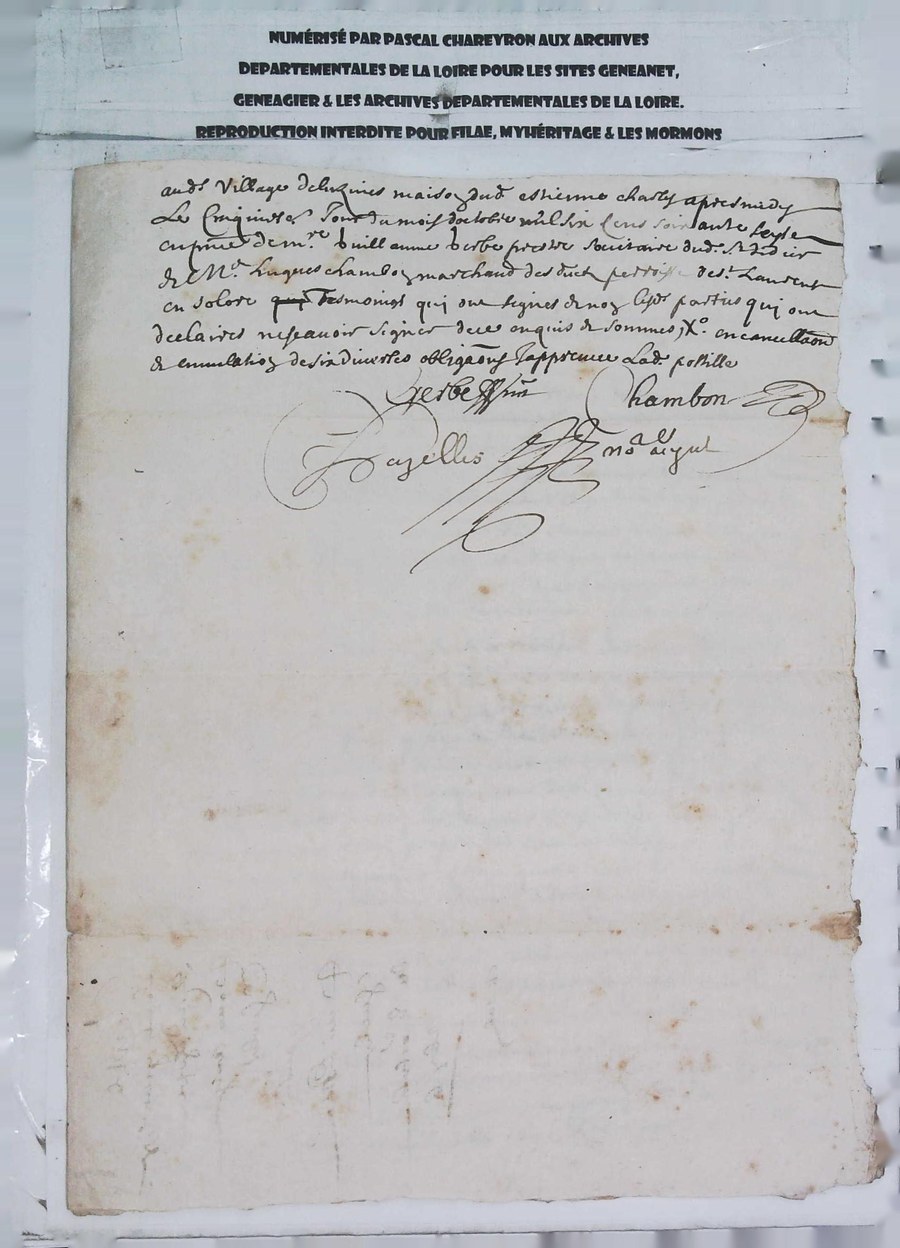 NUMÉRISÉ PAR PASCAL CHAREYRON AUX ARCHIVES
DEPARTEMENTALES DE LA LOIRE POUR LES SITES GENEANET,
GENEAGIER & LES ARCHIVES DEPARTEMENTALES DE LA LOIRE.
REPRODUCTION INTERDITE POUR FILAE, MYHÉRITAGE & LES MORMONS
aud. Village maison dud. estienne charles apresmidy
Le Cinquiesme Jour du mois doctobre mil six Cens soixante seze
en p̄nce de m.re Guillaume Gerbe prestre Societaire dud. St didier
& M.e hugues chambon marchand de parroisse de St Laurent
en solore tesmoings qui ont signes & non lesd. parties qui ont
declaires ne scavoir signer de ce enquis & sommes, en cancellaōn
& annulation de six diverses obligaōns Japprenve Lad. postille
Gerbe Chambon
Bazelles no.re Royal